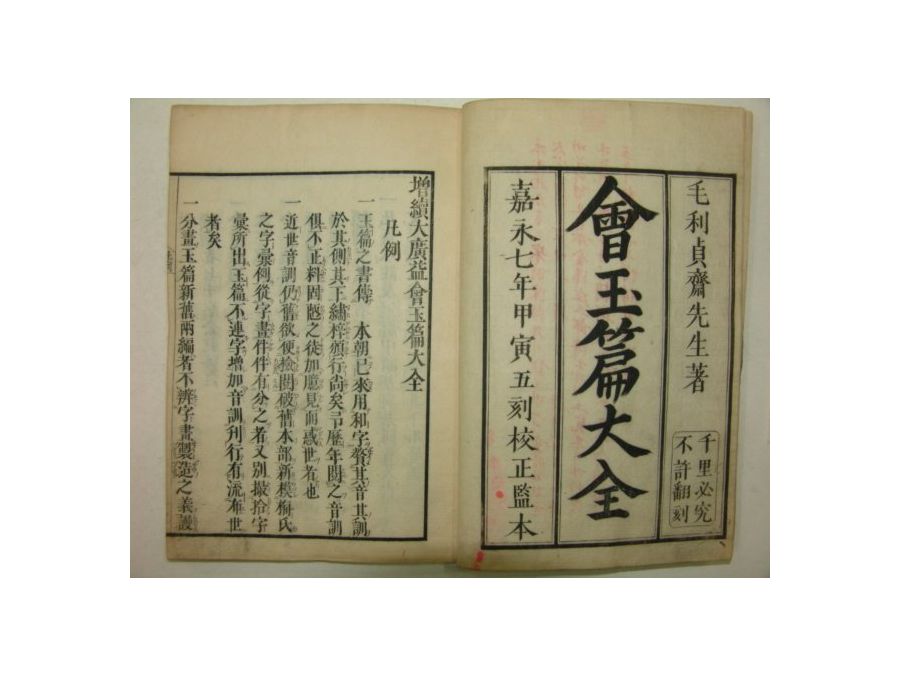 毛利貞齋先生著
千里必究
不許翻刻
會玉篇大全
嘉永七年甲寅五刻校正監本
增續大廣益會玉篇大全
凡例
一玉篇之書傳 本朝已來用和字贅其音其訓
於其側其下繡梓頒行尚矣歷年閱之音訓
俱不正料固陋之徒加麁見而惑世者也
一近世音訓仍舊欲便撿閱破舊本部新模梅氏
之字彙例從字畫件件有分之者又別撮拾字
彙所出玉篇不連字增加音訓刊行有流布世
者矣
一分畫玉篇新舊兩編者不辨字畫製造之義謾